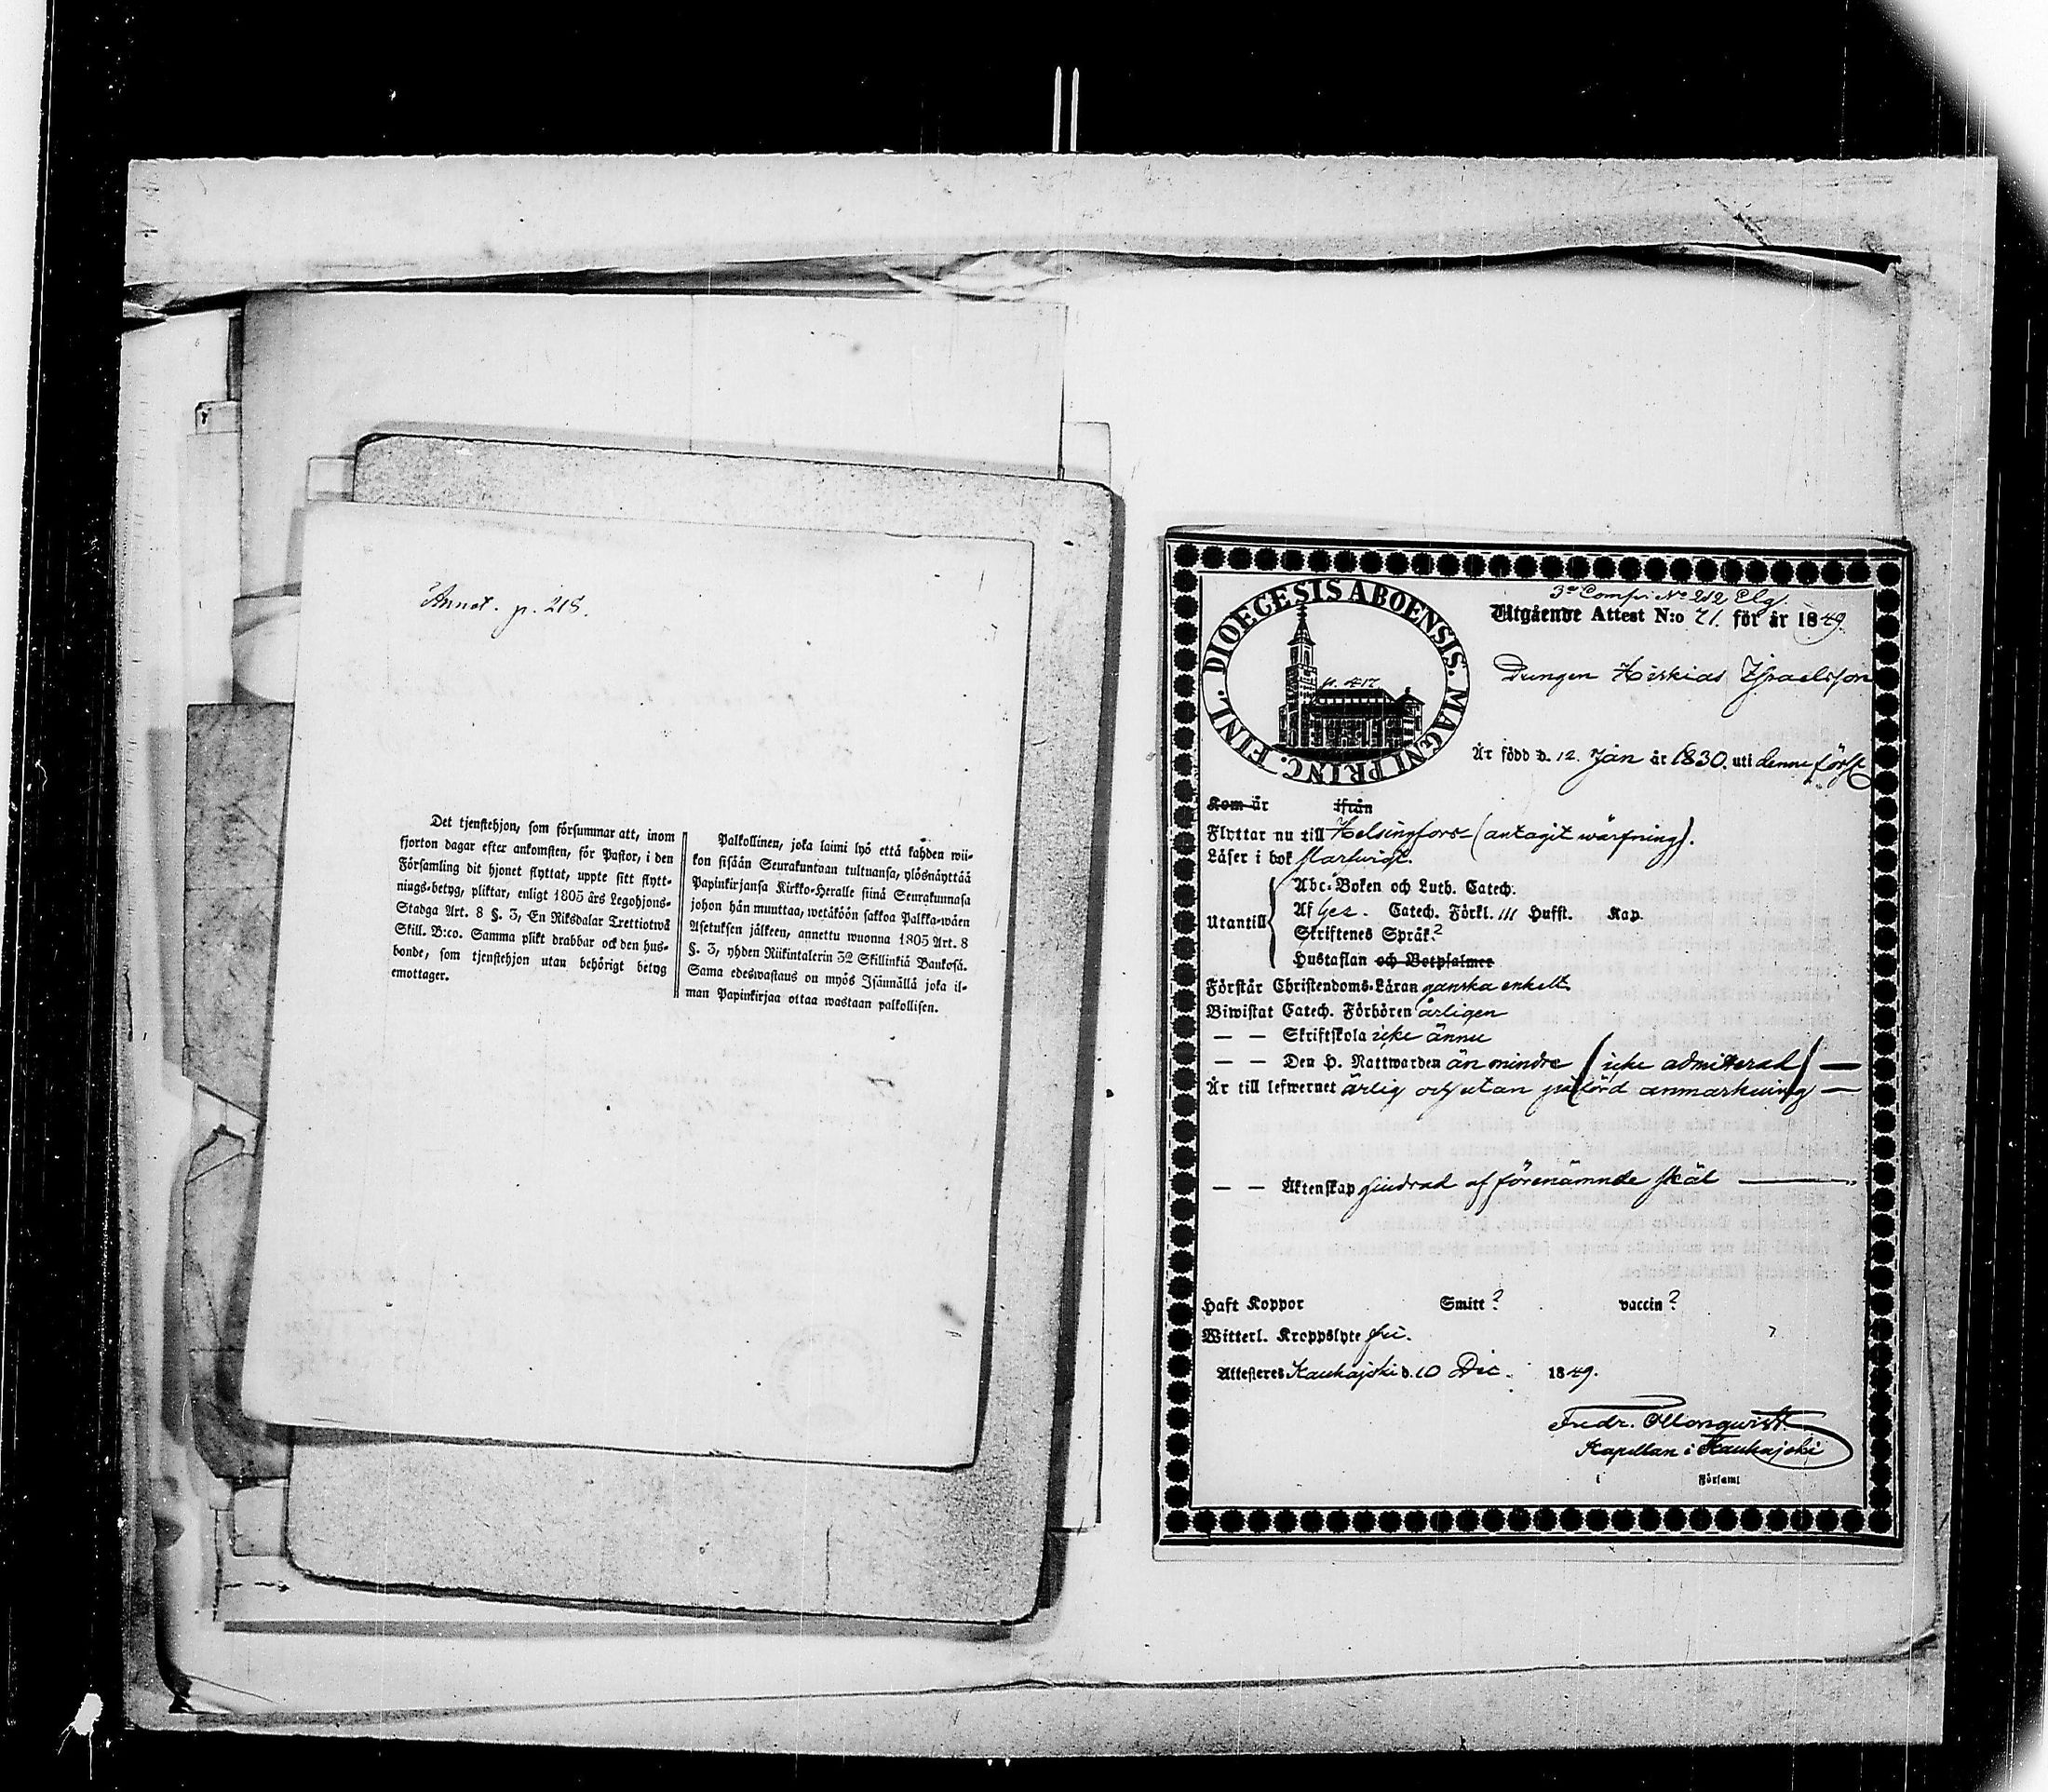 Annot. p. 218.
Det tjenstehjon, som försummar att, inom
fjorton dagar efter ankomsten, för Pastor, i den
Församling dit hjonet flyttat, uppte sitt flytt-
nings-betyg, pliktar, enligt 1805 års Legohjons-
Stadga Art. 8 §. 3, En Riksdalar Trettiotwå
Skill. B:co. Samma plikt drabbar ock den hus-
bonde, som tjenstehjon utan behörigt betyg
emottager.
Palkollinen, joka laimi lyö että kahden wii-
kon sisään Seurakuntaan tultuansa, ylösnäyttää
Papinkirjansa Kirkko-Heralle siinä Seurakunnasa
johon hän muuttaa, wetäköön sakkoa Palkka-wäen
Asetuksen jälkeen, annettu wuonna 1805 Art. 8
§. 3, yhden Riikintalerin 32 Skillinkiä Bankosa.
Sama edeswastaus on myös Isännällä joka il-
man Papinkirjaa ottaa wastaan palkollisen.
3e Comp: No 212 Elg.
DIOECESIS ABOENSIS. MAGNI PRINC. FINL.
Utgående Attest N:o 71. för år 1849.
p. 417
Drengen Hiskias Israelsson
Är född d. 12. Jan år 1830. uti denne förs.
Kom år ifrån
Flyttar nu till Helsingfors (antagit wärfning).
Läser i bok
Utantill
Abc-Boken och Luth. Catech.
Af Ges. Catech. Förkl. III Hufst. Kap
Skriftenes Språk ?
Hustaflan och Botpsalmer
Förstår Christendoms-Läran ganska enkelt
Biwistat Catech. Förhören årligen
— — Skriftskola icke ännu
— — Den H. Nattwarden än mindre (icke admitterad) —
Är till lefwernet ärlig och utan påförd anmärkning —
— — Äktenskap hindrad af förenämnde skäl —
Haft Koppor Smitt ? vaccin ?
Witterl. Kroppslyte fri.
Attesteres Kauhajoki d. 10 Dec. 1849.
Fredr.
Kapellan i Kauhajoki
i Församl